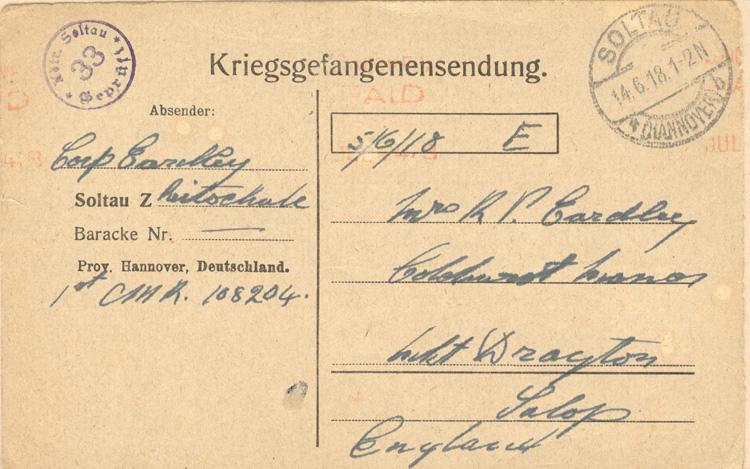 Abtr. Soltau
33
Geprüft
SOLTAU
14.6.18.1-2N
(HANNOVER)
Kriegsgefangenensendung.
PAID
Absender:
Corp Eardley
Soltau Z Reitschule
Baracke Nr. —
Prov. Hannover, Deutschland.
1st CMR. 108204.
5/6/18 E
Mrs R P. Eardley
Manor
Mkt Drayton
Salop
England